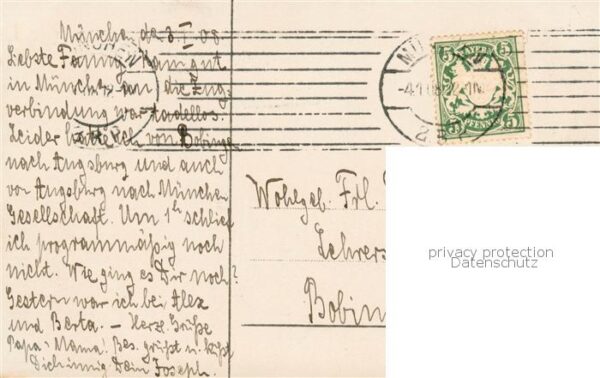 München den 3./I. 08
Liebste Fanny! Kam gut
in München an, die Zug-
verbindung war tadellos.
Leider hatte ich von Bobingen
nach Augsburg und auch
von Augsburg nach München
Gesellschaft. Um 1 h schlief
ich programmäßig noch
nicht. Wie ging es Dir noch?
Gestern war ich bei Alex
und Berta. – Herzl. Grüße
Papa, Mama! Bes. grüßt u. küßt
Dich innig Dein Joseph.
BAYERN
5 5
PFENNIG
Wohlgeb. Frl.
Lehrers
Bobin
privacy protection
Datenschutz